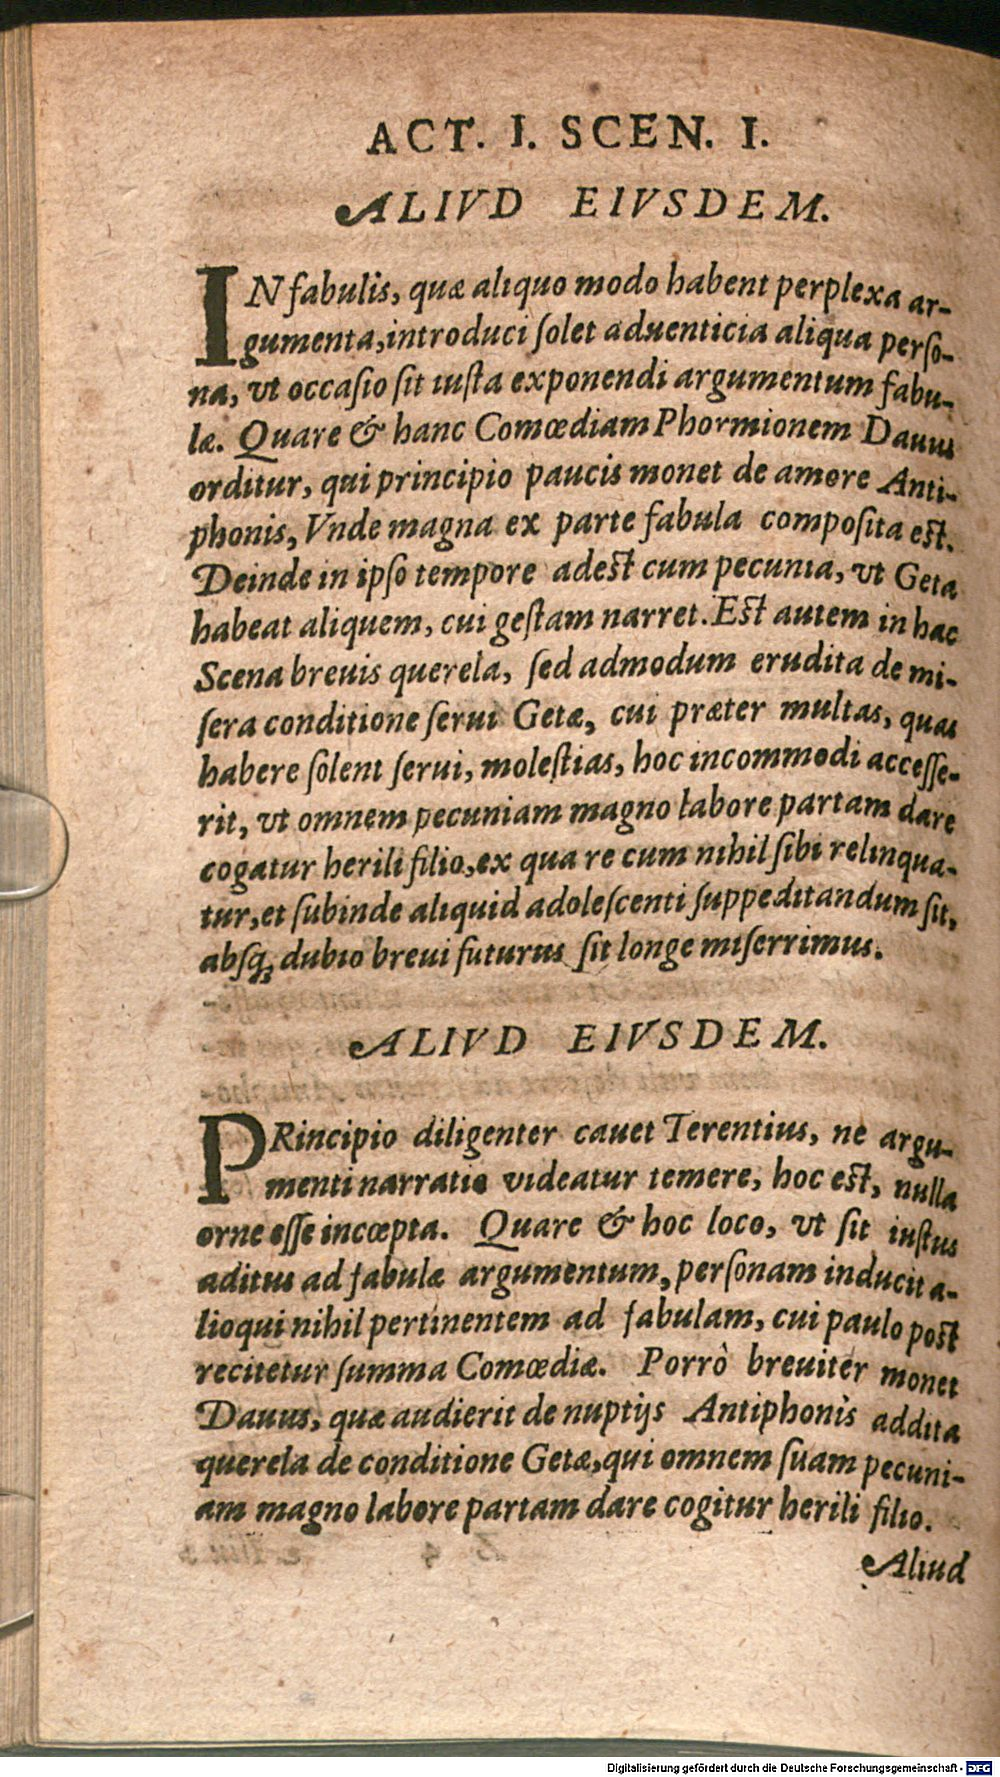 ACT. I. SCEN. I.
ALIVD EIVSDEM.
IN fabulis, quæ aliquo modo habent perplexa ar-
gumenta, introduci ſolet aduenticia aliqua perſo-
na, vt occaſio ſit iuſta exponendi argumentum fabu-
læ. Quare & hanc Comœdiam Phormionem Dauus
orditur, qui principio paucis monet de amore Anti-
phonis, Vnde magna ex parte fabula compoſita eſt.
Deinde in ipſo tempore adeſt cum pecunia, vt Geta
habeat aliquem, cui geſtam narret. Eſt autem in hac
Scena breuis querela, ſed admodum erudita de mi-
ſera conditione ſerui Getæ, cui præter multas, quas
habere ſolent ſerui, moleſtias, hoc incommodi acceſſe-
rit, vt omnem pecuniam magno labore partam dare
cogatur herili filio, ex qua re cum nihil ſibi relinqua-
tur, et ſubinde aliquid adoleſcenti ſuppeditandum ſit,
abſq; dubio breui futurus ſit longe miſerrimus.
ALIVD EIVSDEM.
PRincipio diligenter cauet Terentius, ne argu-
menti narratio videatur temere, hoc eſt, nulla
orne eſſe incœpta. Quare & hoc loco, vt ſit iuſtus
aditus ad fabulæ argumentum, perſonam inducit a-
lioqui nihil pertinentem ad fabulam, cui paulo poſt
recitetur ſumma Comœdiæ. Porrò breuiter monet
Dauus, quæ audierit de nuptijs Antiphonis addita
querela de conditione Getæ, qui omnem ſuam pecuni-
am magno labore partam dare cogitur herili filio.
Aliud
Digitalisierung gefördert durch die Deutsche Forschungsgemeinschaft - DFG